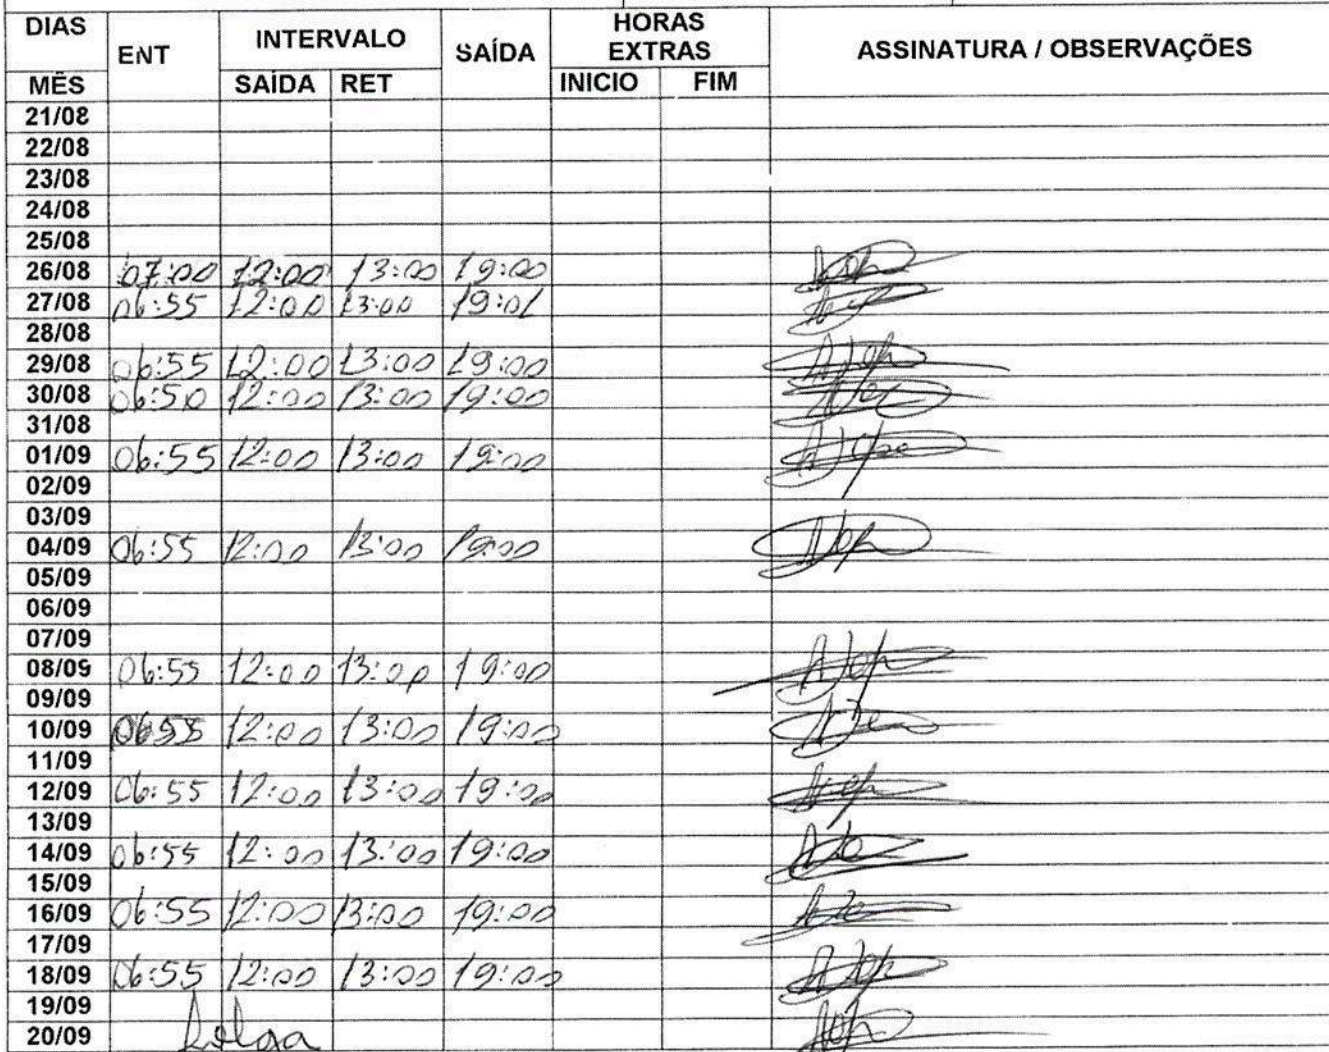 DIAS ENT INTERVALO SAÍDA HORAS EXTRAS ASSINATURA / OBSERVAÇÕES
MÊS SAÍDA RET INICIO FIM
21/08
22/08
23/08
24/08
25/08
26/08 07:00 12:00 13:00 19:00
27/08 06:55 12:00 13:00 19:01
28/08
29/08 06:55 12:00 13:00 19:00
30/08 06:50 12:00 13:00 19:00
31/08
01/09 06:55 12:00 13:00 19:00
02/09
03/09
04/09 06:55 12:00 13:00 19:00
05/09
06/09
07/09
08/09 06:55 12:00 13:00 19:00
09/09
10/09 06:55 12:00 13:00 19:00
11/09
12/09 06:55 12:00 13:00 19:00
13/09
14/09 06:55 12:00 13:00 19:00
15/09
16/09 06:55 12:00 13:00 19:00
17/09
18/09 06:55 12:00 13:00 19:00
19/09
20/09 Folga